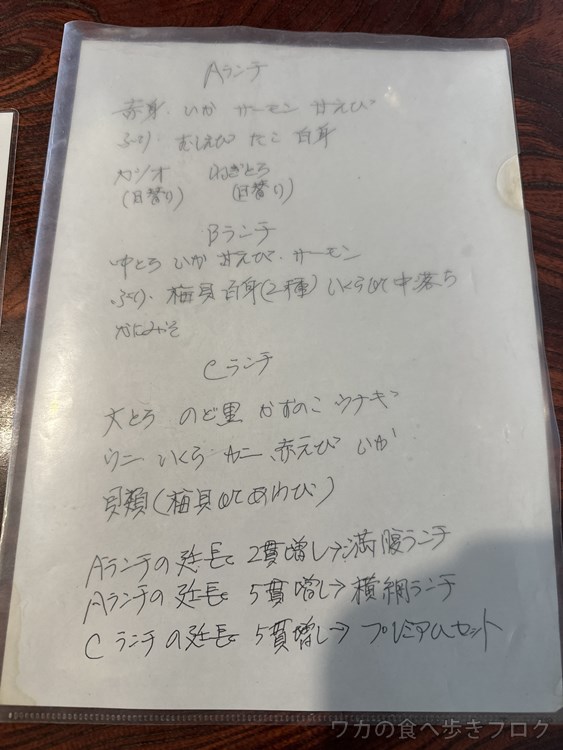 Aランチ
赤身 いか サーモン 甘えび
ぶり むしえび たこ 白身
カツオ ねぎとろ
(日替り) (日替り)
Bランチ
中とろ いか 甘えび サーモン
ぶり 梅貝 白身(2種) いくらor中落ち
かにみそ
Cランチ
大とろ のど黒 かずのこ ウナギ
ウニ いくら カニ 赤えび いか
貝類(梅貝orあわび)
Aランチの延長で 2貫増し→満腹ランチ
Aランチの延長で 5貫増し→横綱ランチ
Cランチの延長で 5貫増し→プレミアムセット
ワカの食べ歩きブログ